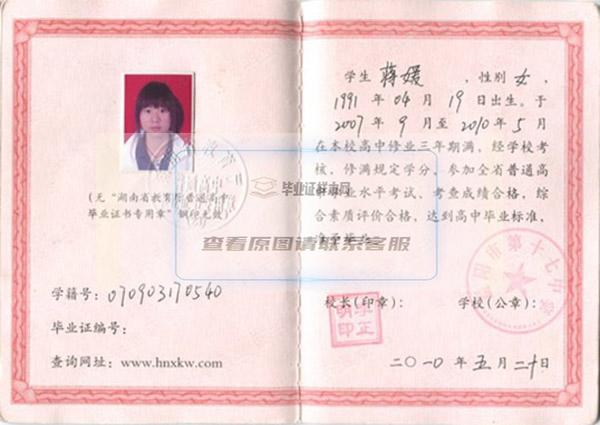 (无“湖南省教育厅普通高中
毕业证书专用章”钢印无效)
学籍号:070903170540
毕业证编号:
查询网址:www.hnxkw.com
学生 蒋媛 ,性别 女 ,
1991 年 04 月 19 日出生。于
2007 年 9 月至 2010 年 5 月
在本校高中修业三年期满,经学校考
核,修满规定学分,参加全省普通高
中毕业水平考试、考查成绩合格,综
合素质评价合格,达到高中毕业标准,
准予毕业。
校长(印章): 学校(公章):
李正
明印
市第十七中学
二〇一〇 年 五 月 二十 日
毕业证样本网
查看原图请联系客服